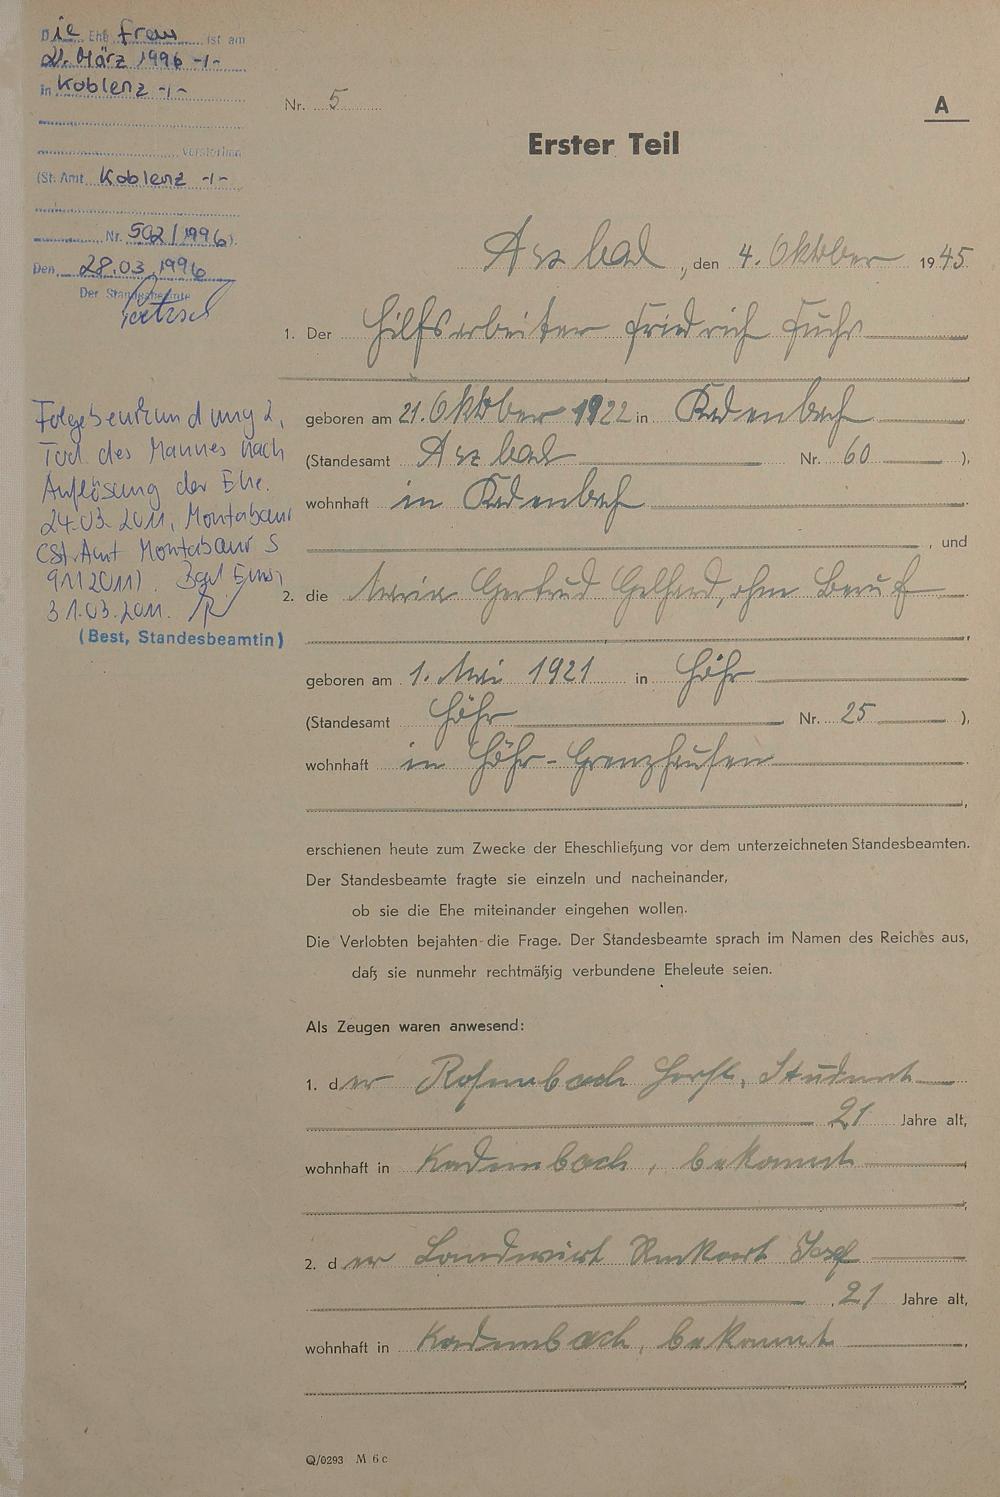 Die Ehefrau ist am
21. März 1996 -/-
in Koblenz -/-
verstorben
(St. Amt Koblenz -/-
Nr. 502/1996).
Den 28.03.1996
Der Standesbeamte
Folgebeurkundung 2,
Tod des Mannes nach
Auflösung der Ehe.
24.03.2011, Montabaur
(St.Amt Montabaur S
91/2011). Bad Ems,
31.03.2011.
(Best, Standesbeamtin)
Nr. 5
A
Erster Teil
Arzbach, den 4. Oktober 1945.
1. Der Hilfsarbeiter Friedrich Fuchs
geboren am 21. Oktober 1922 in Kadenbach
(Standesamt Arzbach Nr. 60 ),
wohnhaft in Kadenbach
, und
2. die Maria Gertrud Gelhard, ohne Beruf
,
geboren am 1. Mai 1921 in Höhr
(Standesamt Höhr Nr. 25 ),
wohnhaft in Höhr-Grenzhausen
,
erschienen heute zum Zwecke der Eheschließung vor dem unterzeichneten Standesbeamten.
Der Standesbeamte fragte sie einzeln und nacheinander,
ob sie die Ehe miteinander eingehen wollen.
Die Verlobten bejahten die Frage. Der Standesbeamte sprach im Namen des Reiches aus,
daß sie nunmehr rechtmäßig verbundene Eheleute seien.
Als Zeugen waren anwesend:
1. der Rosenbach Horst, Student
21 Jahre alt,
wohnhaft in Kadenbach, bekannt
;
2. der Landwirt Josef
21 Jahre alt,
wohnhaft in Kadenbach, bekannt
Q/0293 M 6 c